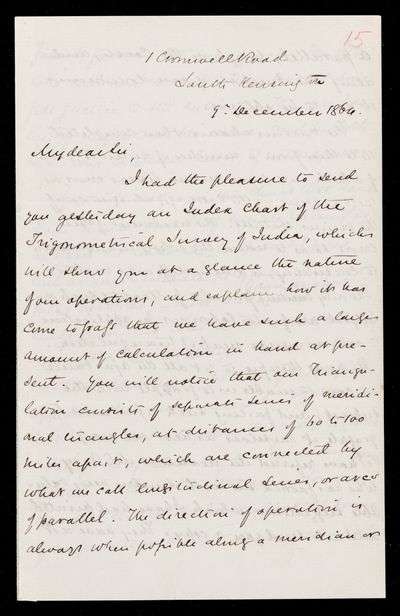 15
1 Cromwell Road
South Kensington
9th December 1864.
My dear Sir,
I had the pleasure to send
you yesterday an Index Chart of the
Trigonometrical Survey of India, which
will shew you at a glance the nature
of our operations, and explain how it has
come to pass that we have such a large
amount of calculation in hand at pre-
sent. You will notice that our Triangu-
lation consists of separate series of meridi-
onal triangles, at distances of 60 to 100
miles apart, which are connected by
what we call longitudinal series, or arcs
of parallel. The direction of operation is
always when possible along a meridian or